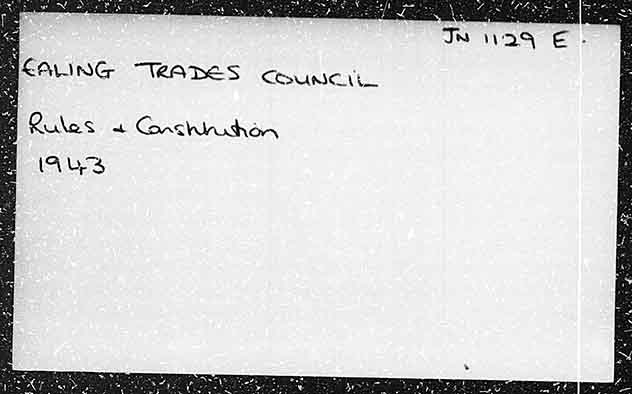 JN 1129 E.
EALING TRADES COUNCIL
Rules & Constitution
1943